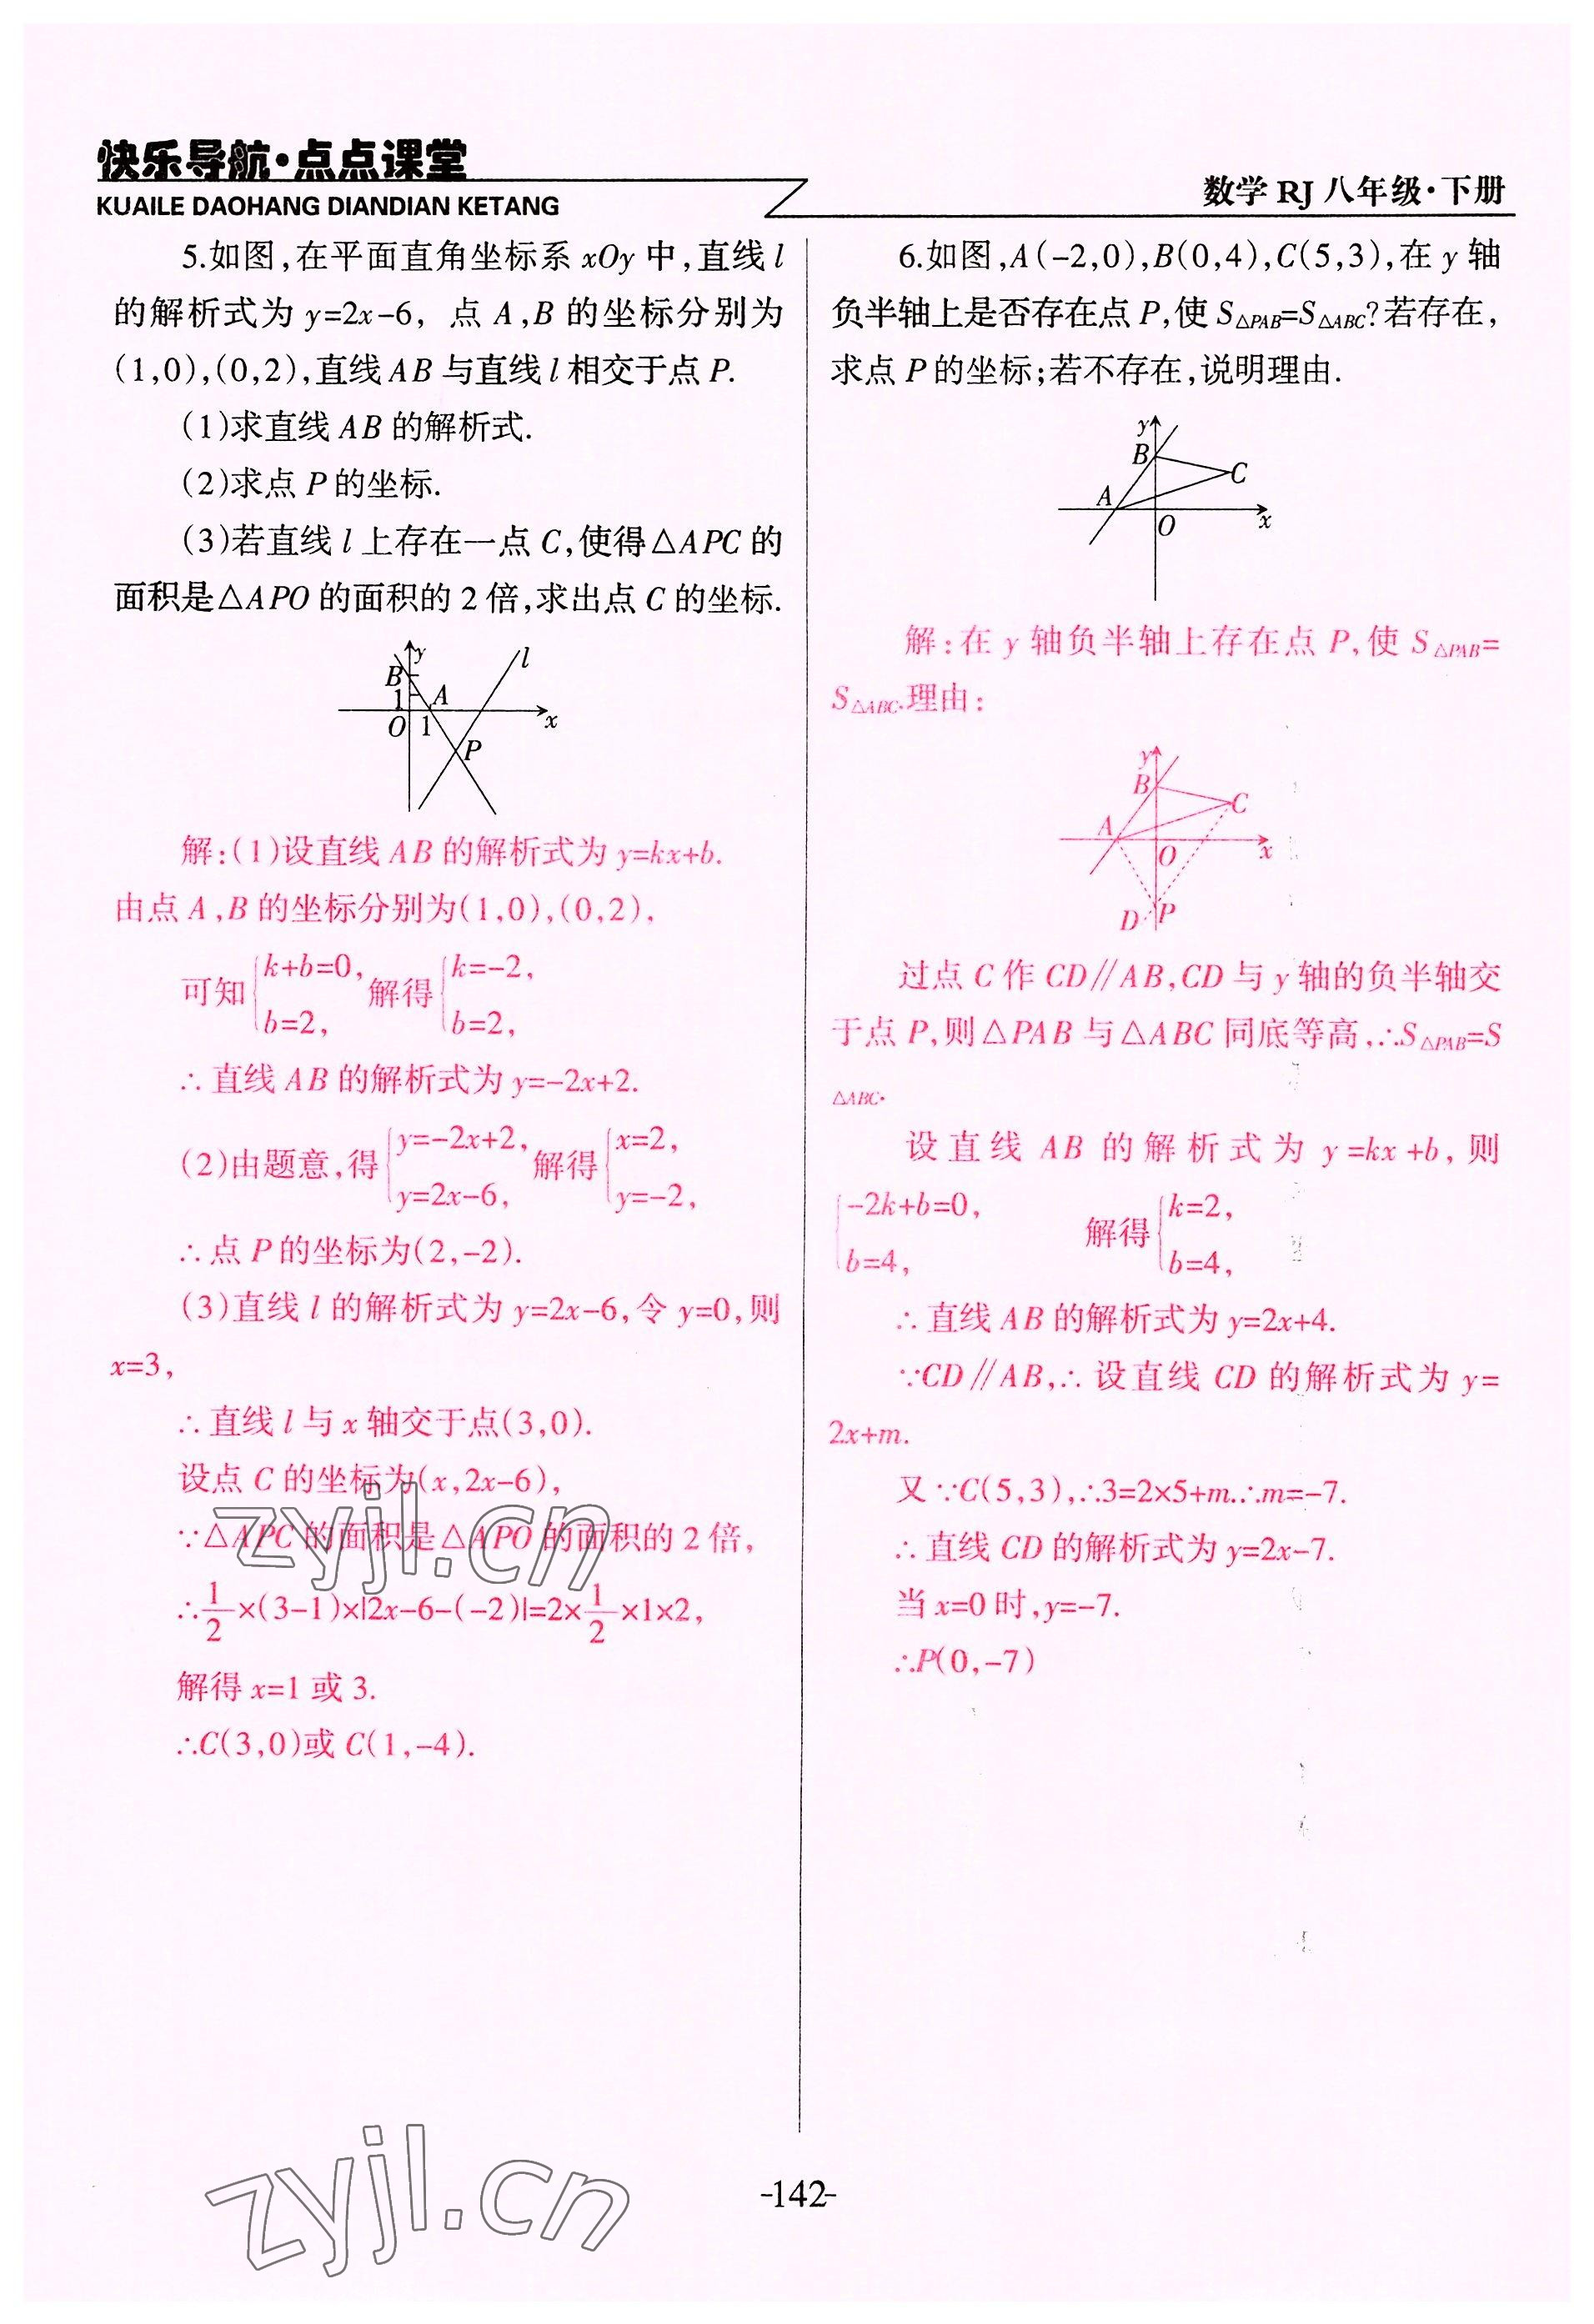 快乐导航·点点课堂
KUAILE DAOHANG DIANDIAN KETANG
数学 RJ 八年级·下册
5.如图,在平面直角坐标系 xOy 中,直线 l
的解析式为 y=2x-6, 点 A,B 的坐标分别为
(1,0),(0,2),直线 AB 与直线 l 相交于点 P.
(1)求直线 AB 的解析式.
(2)求点 P 的坐标.
(3)若直线 l 上存在一点 C,使得△APC 的
面积是△APO 的面积的 2 倍,求出点 C 的坐标.
y
l
B
1
A
O
1
x
P
解:(1)设直线 AB 的解析式为 y=kx+b.
由点 A,B 的坐标分别为(1,0),(0,2),
可知{k+b=0, b=2, 解得{k=-2, b=2,
∴直线 AB 的解析式为 y=-2x+2.
(2)由题意,得{y=-2x+2, y=2x-6, 解得{x=2, y=-2,
∴点 P 的坐标为(2,-2).
(3)直线 l 的解析式为 y=2x-6,令 y=0,则
x=3,
∴直线 l 与 x 轴交于点(3,0).
设点 C 的坐标为(x,2x-6),
∵△APC 的面积是△APO 的面积的 2 倍,
∴1/2×(3-1)×|2x-6-(-2)|=2×1/2×1×2,
解得 x=1 或 3.
∴C(3,0)或 C(1,-4).
6.如图,A(-2,0),B(0,4),C(5,3),在 y 轴
负半轴上是否存在点 P,使 S△PAB=S△ABC?若存在,
求点 P 的坐标;若不存在,说明理由.
y
B
C
A
O
x
解:在 y 轴负半轴上存在点 P,使 S△PAB=
S△ABC.理由:
y
B
C
A
O
x
D
P
过点 C 作 CD∥AB,CD 与 y 轴的负半轴交
于点 P,则△PAB 与△ABC 同底等高,∴S△PAB=S
△ABC.
设直线 AB 的解析式为 y=kx+b,则
{-2k+b=0, b=4, 解得{k=2, b=4,
∴直线 AB 的解析式为 y=2x+4.
∵CD∥AB,∴设直线 CD 的解析式为 y=
2x+m.
又∵C(5,3),∴3=2×5+m.∴m=-7.
∴直线 CD 的解析式为 y=2x-7.
当 x=0 时,y=-7.
∴P(0,-7)
zyjl.cn
zyjl.cn
-142-